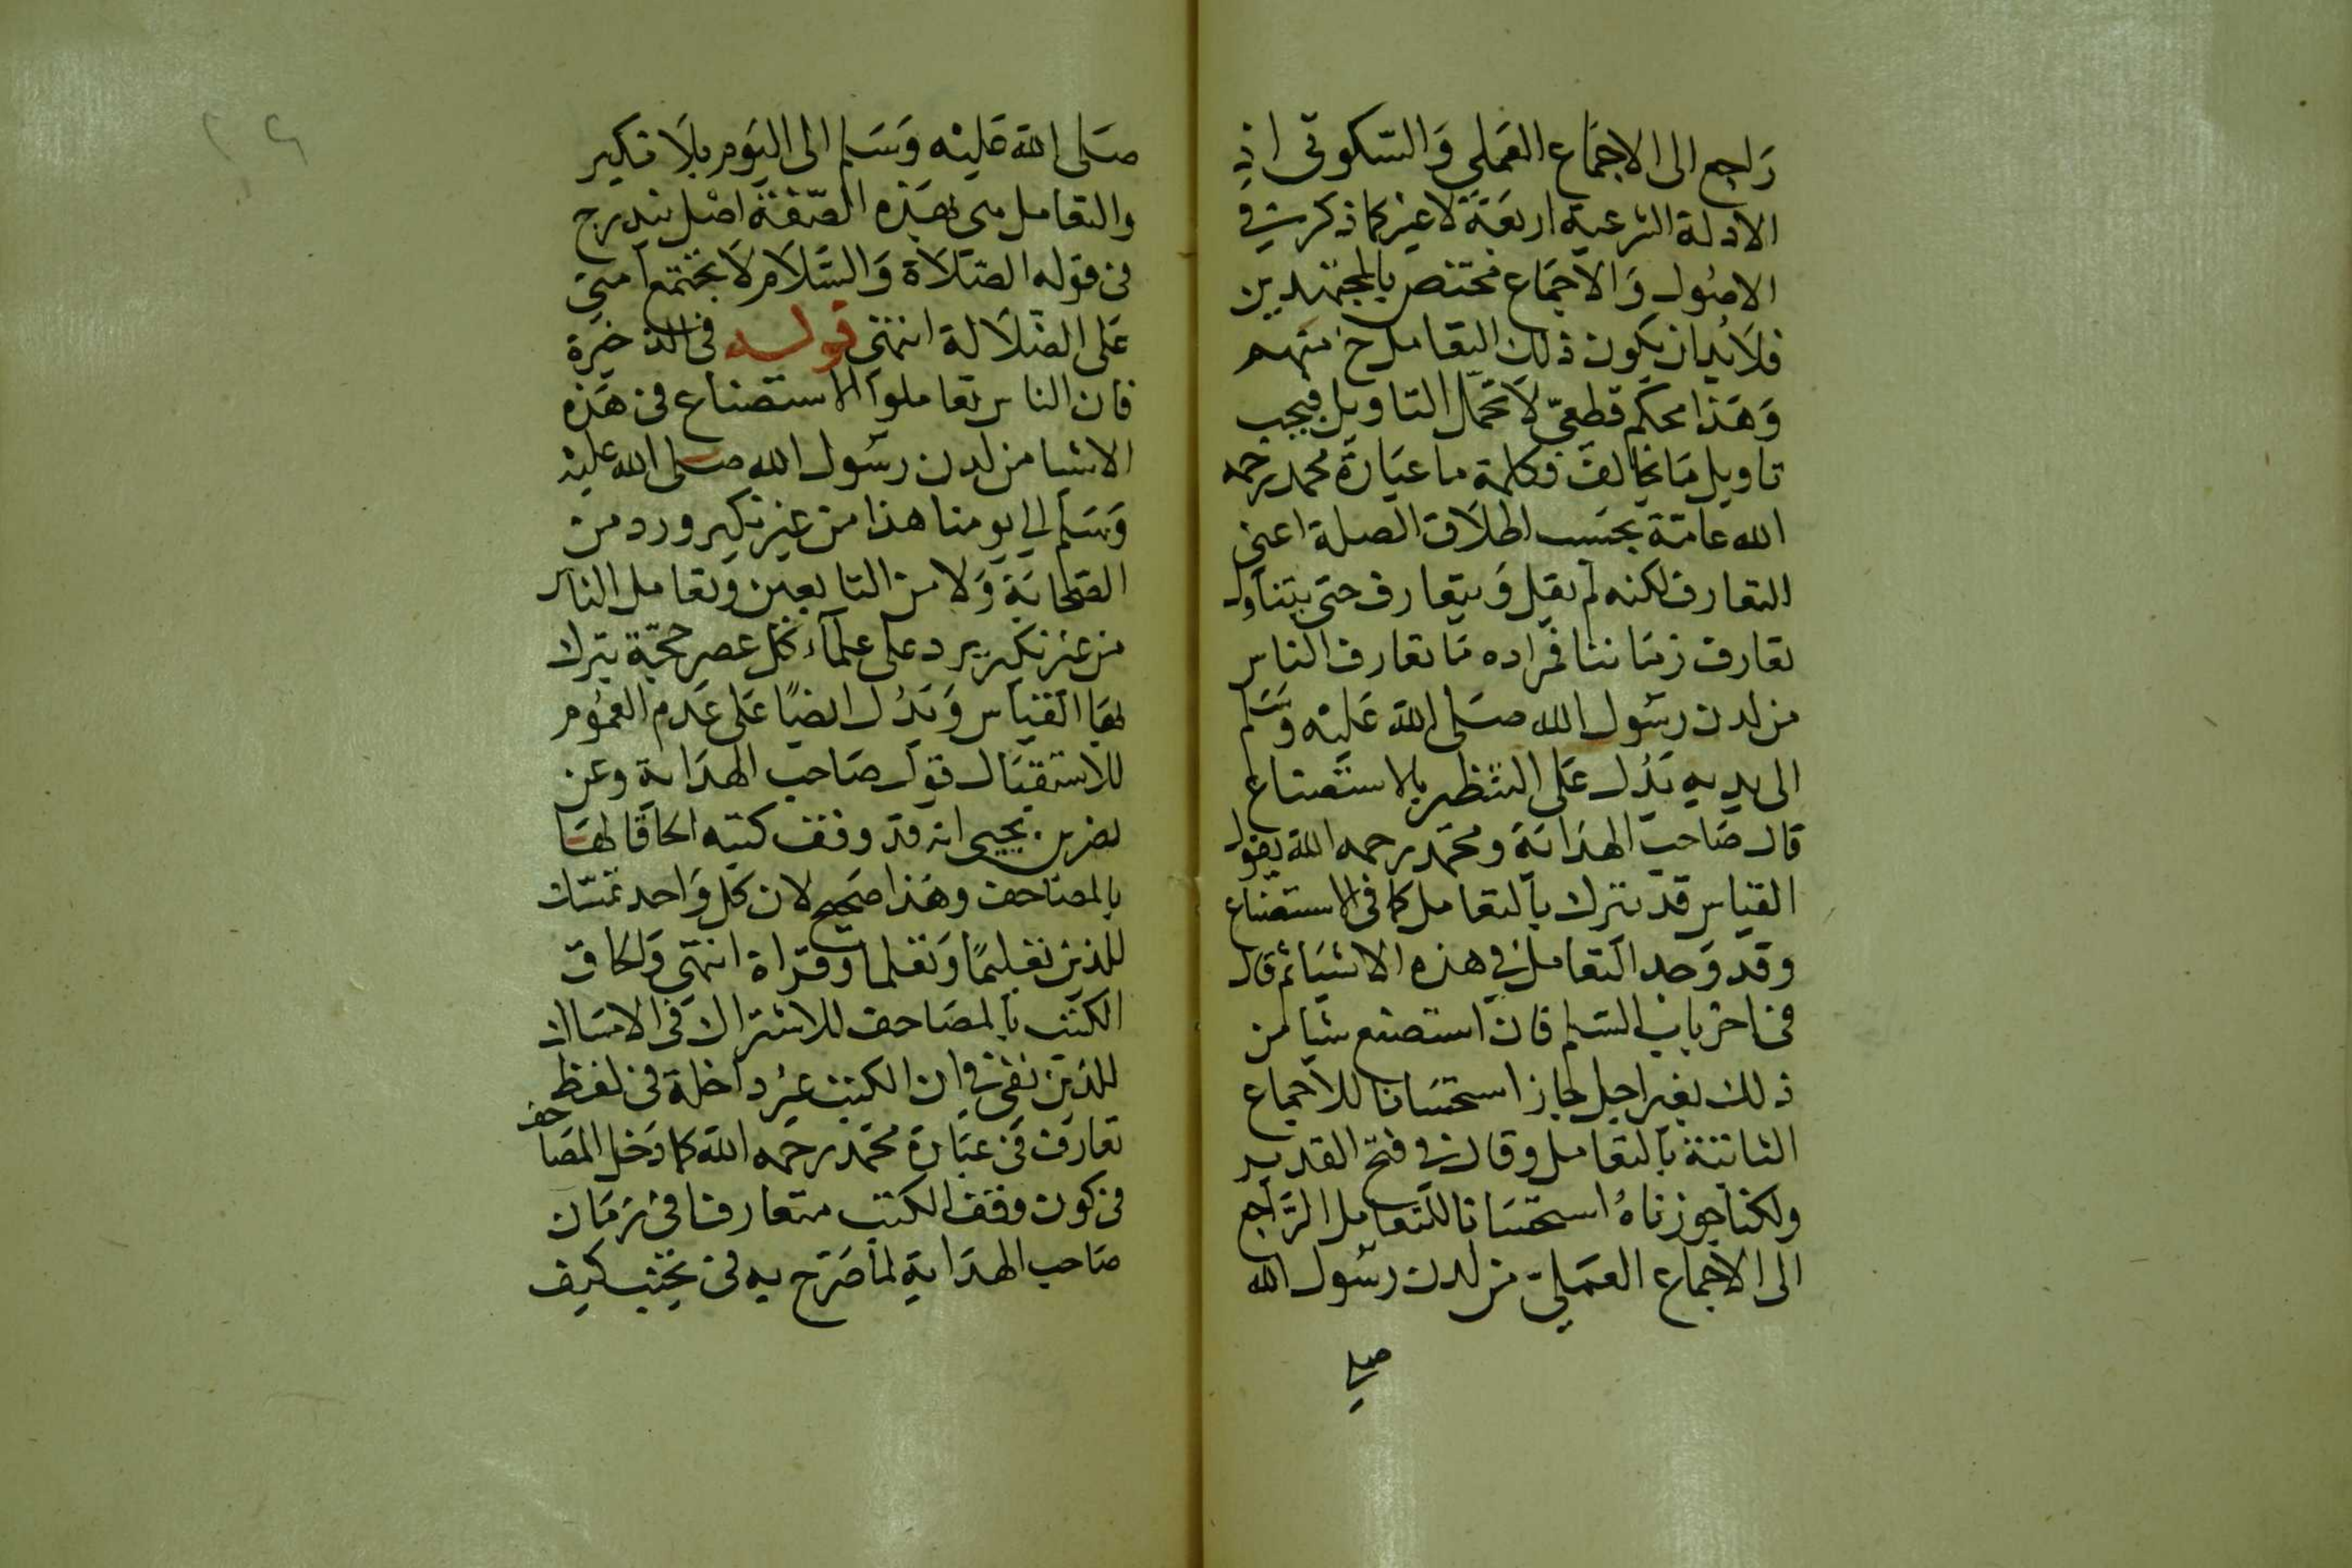 راجع الى الاجماع العملي والسكوتى اذ
الادلة الشرعية اربعة لا غير كما ذكر في
الاصول والاجماع مختص بالمجتهدين
فلابد ان يكون ذلك التعامل منهم
وهذا محكم قطعي لا يحتمل التاويل فيجب
تاويل ما يخالف فكلمة ما عبارة محمد رحمه
الله عامة بحسب اطلاق الصلة اعني
التعارف لكنه لم يقل ويتعارف حتى يتناول
تعارف زماننا فمراده ما تعارف الناس
من لدن رسول الله صلى الله عليه وسلم
الى يدل على التنظير بالاستصناع
قال صاحب الهداية ومحمد رحمه الله يقول
القياس قد يترك بالتعامل كما فى الاستصناع
وقد وجد التعامل في هذه الاشيا ثم قال
فى اخر باب السلم فان استصنع شيا من
ذلك بغير اجل جاز استحسانا للاجماع
الثابتة بالتعامل وقال في فتح القدير
ولكنا جوزناه استحسانا للتعامل الراجع
الى الاجماع العملي من لدن رسول الله
صلى
صلى الله عليه وسلم الى اليوم بلا نكير
والتعامل بهذه الصفة اصل يندرج
فى قوله الصلاة والسلام لا تجتمع امتي
على الضلالة انتهى قوله فى الذخيرة
فان الناس تعاملوا الاستصناع فى هذه
الاشيا من لدن رسول الله صلى الله عليه
وسلم الي يومنا هذا من غير نكير ورد من
الصحابة ولا من التابعين وتعامل الناس
من غير نكير يرد على علماء كل عصر حجة يترك
بها القياس ويدل ايضا على عدم العموم
للاستقبال قول صاحب الهداية وعن
نصر بن يحيى انه قد وقف كتبه الحاقا لها
بالمصاحف وهذا صحيح لان كل واحد تمسك
للدين تعليما وتعلما وقراة انتهى والحاق
الكتب بالمصاحف للاشتراك فى الامساك
للدين في ان الكتب غير داخلة فى لفظ
تعارف فى عبارة محمد رحمه الله كما دخل المصاحف
فى كون وقف الكتب متعارفا فى زمان
صاحب الهداية لما صرح به فى كيف